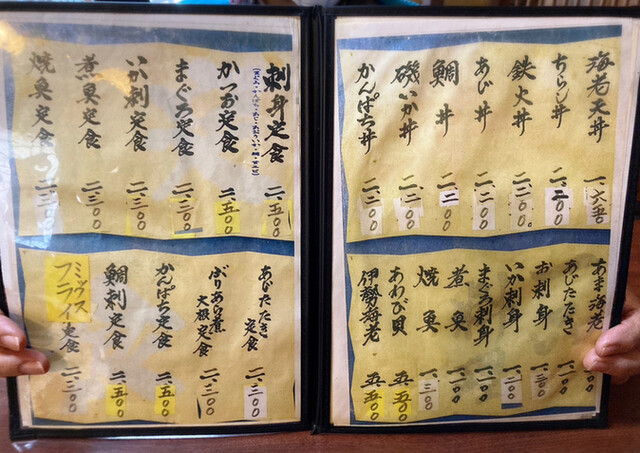 海老天丼 一、六五〇
ちらし丼 二、二〇〇
鉄火丼 二、二〇〇
あじ丼 二、二〇〇
鯛丼 二、二〇〇
磯いか丼 二、二〇〇
かんぱち丼 二、二〇〇
あま海老
あじたたき 一、一〇〇
お刺身
いか刺身
まぐろ刺身 一、一〇〇
煮魚 一、一〇〇
焼魚
あわび貝 五、五〇〇
伊勢海老 五、五〇〇
刺身定食 二、五〇〇
かつお定食 二、五〇〇
まぐろ定食 二、三〇〇
いか刺定食 二、三〇〇
煮魚定食 二、三〇〇
焼魚定食 二、三〇〇
あじたたき
定食 二、三〇〇
ぶりあら煮
大根定食 二、三〇〇
かんぱち定食 二、五〇〇
鯛刺定食 二、五〇〇
ミックス
フライ定食 二、三〇〇